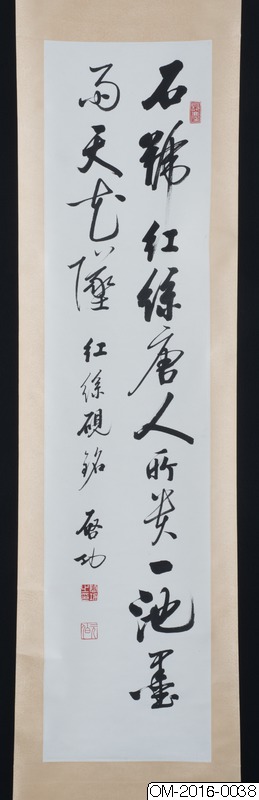 石號紅絲唐人所貴一池墨
雨天花墜
紅絲硯銘 啓功
OM-2016-0038